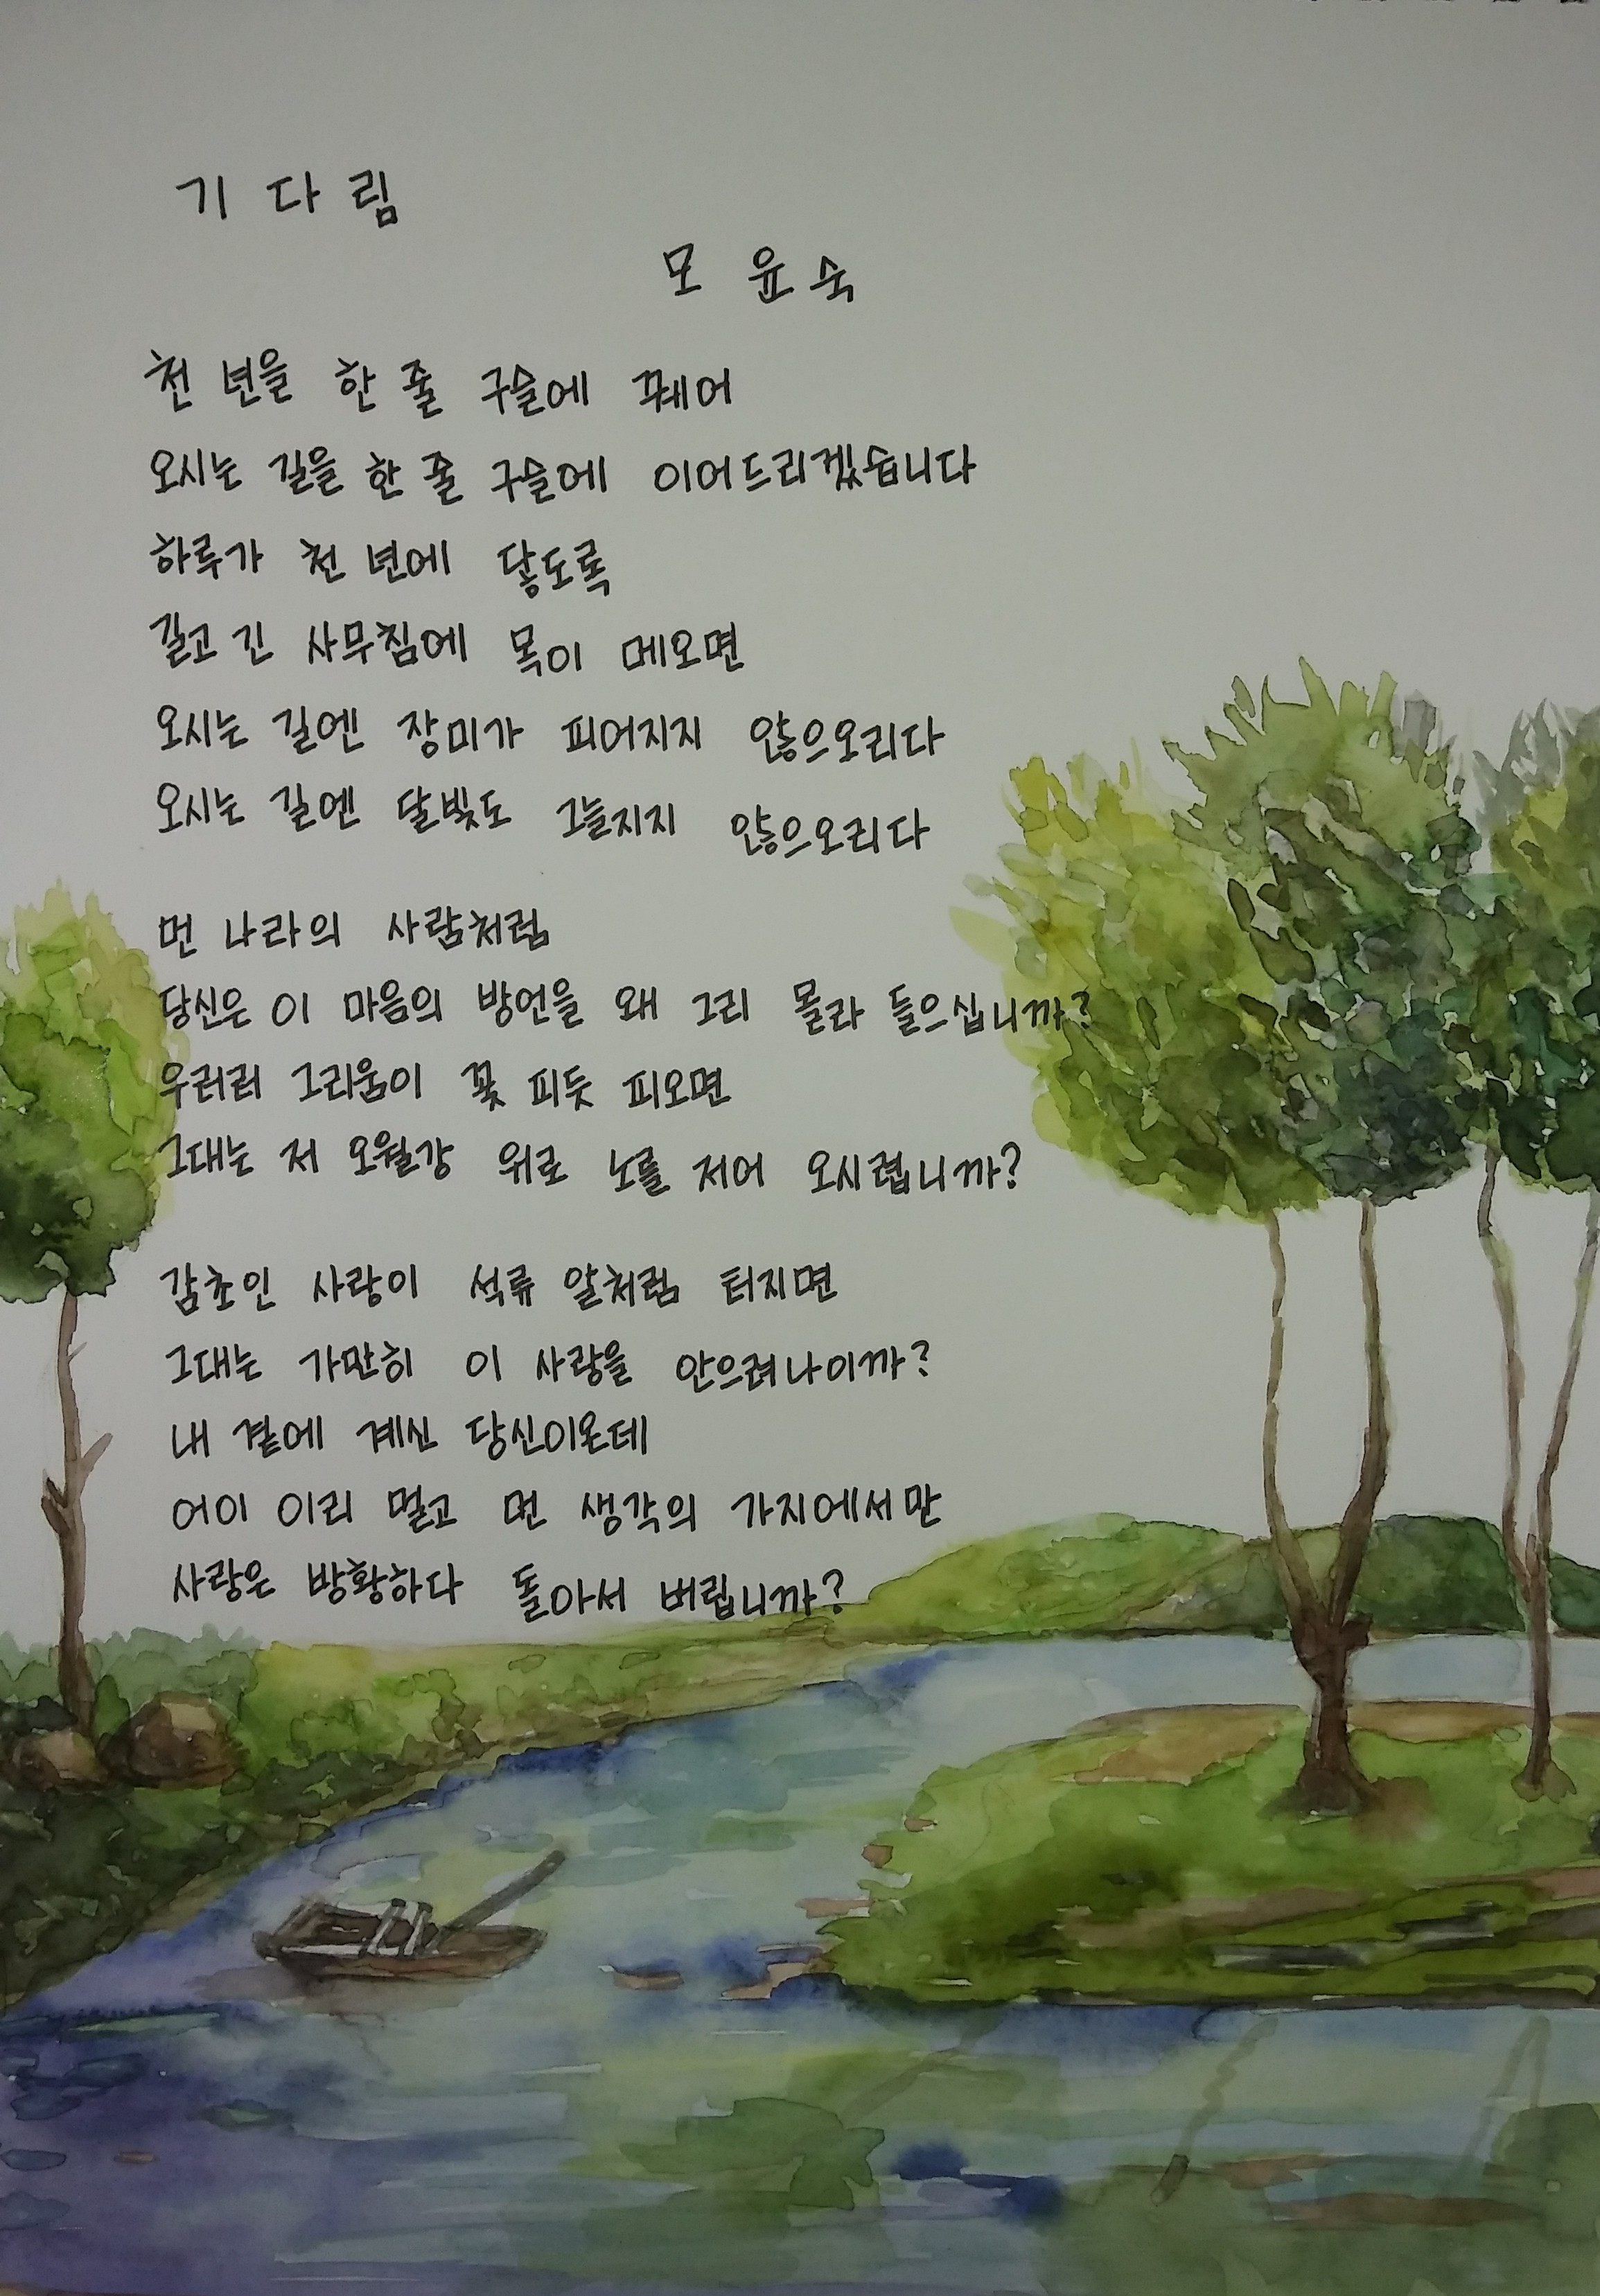 기다림
모윤숙
천 년을 한 줄 구슬에 꿰어
오시는 길을 한 줄 구슬에 이어드리겠습니다
하루가 천 년에 닿도록
길고 긴 사무침에 목이 메오면
오시는 길엔 장미가 피어지지 않으오리다
오시는 길엔 달빛도 그늘지지 않으오리다
먼 나라의 사람처럼
당신은 이 마음의 방언을 왜 그리 몰라 들으십니까?
우러러 그리움이 꽃 피듯 피오면
그대는 저 오월강 위로 노를 저어 오시렵니까?
감초인 사랑이 석류 알처럼 터지면
그대는 가만히 이 사랑을 안으려나이까?
내 곁에 계신 당신이온데
어이 이리 멀고 먼 생각의 가지에서만
사랑은 방황하다 돌아서 버립니까?